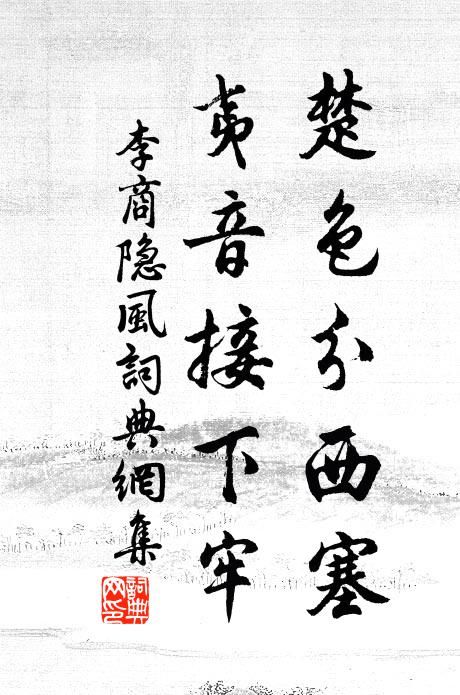 楚色分西塞
夷音接下牢
李商隐風詞典網集
詞典网印